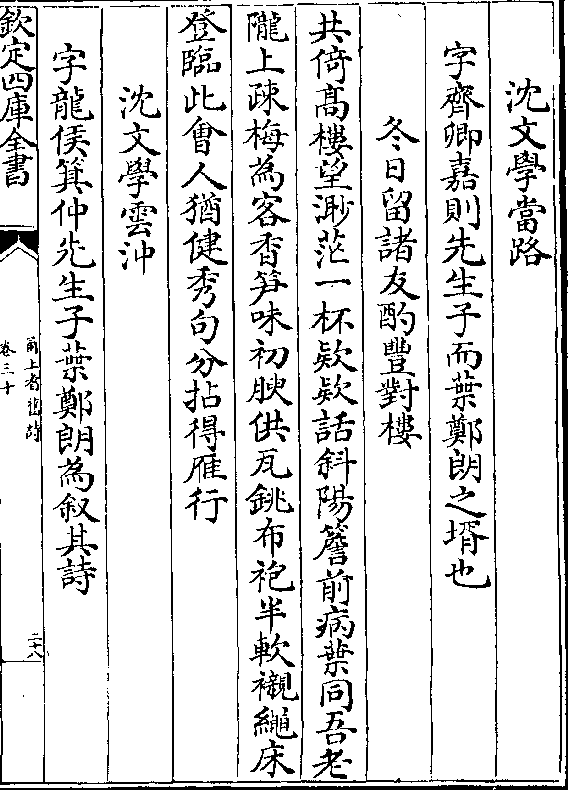 沈文學當路
字齊卿嘉則先生子而葉鄭朗之壻也
冬日留諸友酌豐對樓
共倚髙樓望渺茫一杯欵欵話斜陽簷前病葉同吾老
隴上疎梅為客香笋味初腴供瓦銚布袍半軟襯繩床
登臨此會人猶健秀句分拈得雁行
沈文學雲沖
字龍侯箕仲先生子葉鄭朗為叙其詩
欽定四庫全書
甬上耆舊詩
卷三十
二十八